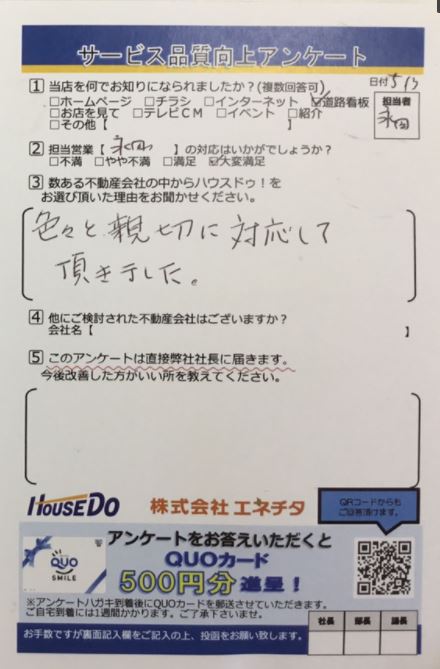 サービス品質向上アンケート
日付 5/3
1 当店を何でお知りになられましたか?(複数回答可)
□ホームページ □チラシ □インターネット ☑道路看板
□お店を見て □テレビCM □イベント □紹介
□その他【 】
担当者
永田
2 担当営業【 永田 】の対応はいかがでしょうか?
□不満 □やや不満 □満足 ☑大変満足
3 数ある不動産会社の中からハウスドゥ!を
お選び頂いた理由をお聞かせください。
色々と親切に対応して
頂きました。
4 他にご検討された不動産会社はございますか?
会社名【 】
5 このアンケートは直接弊社社長に届きます。
今後改善した方がいい所を教えてください。
HOUSEDO 株式会社 エネチタ
QRコードからも
ご回答頂けます。
QUO
SMILE
アンケートをお答えいただくと
QUOカード
500円分 進呈!
※アンケートハガキ到着後にQUOカードを郵送させていただきます。
ご自宅到着には1週間かかります。ご了承下さいませ。
お手数ですが裏面記入欄をご記入の上、投函をお願い致します。
社長 部長 店長